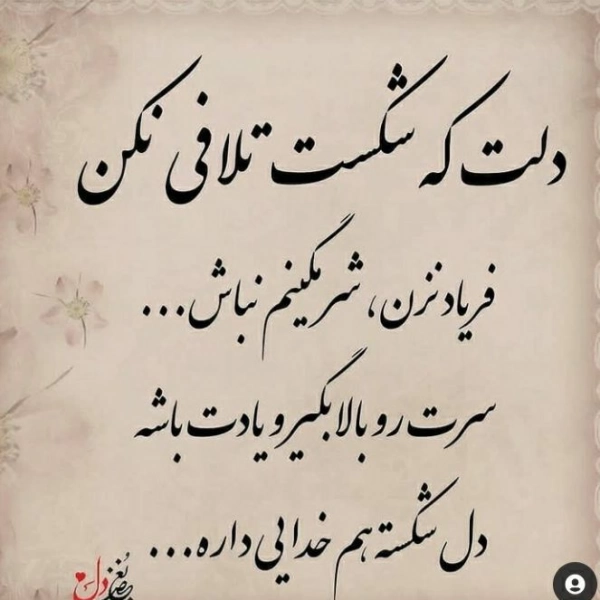 دلت که شکست تلافی نکن
فریاد نزن، شرمگینم نباش...
سرت رو بالا بگیر و یادت باشه
دل شکسته هم خدایی داره...